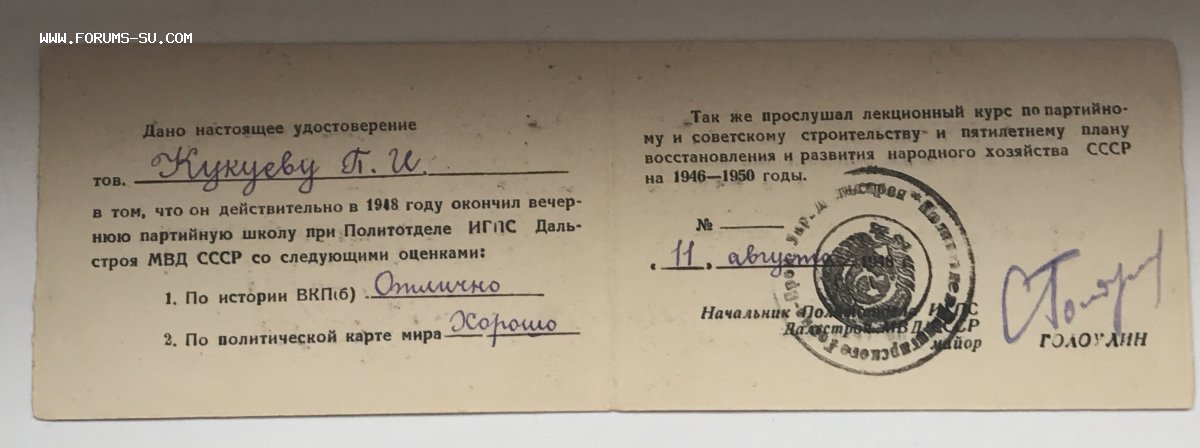 WWW.FORUMS-SU.COM
Дано настоящее удостоверение
тов. Кукуеву П. И.
в том, что он действительно в 1948 году окончил вечер-
нюю партийную школу при Политотделе ИГПС Даль-
строя МВД СССР со следующими оценками:
1. По истории ВКП(б) Отлично
2. По политической карте мира Хорошо
Так же прослушал лекционный курс по партийно-
му и советскому строительству и пятилетнему плану
восстановления и развития народного хозяйства СССР
на 1946—1950 годы.
№
„ 11 „ августа 1948
Начальник Политотдела ИГПС
Дальстроя МВД СССР
майор ГОЛОУЛИН